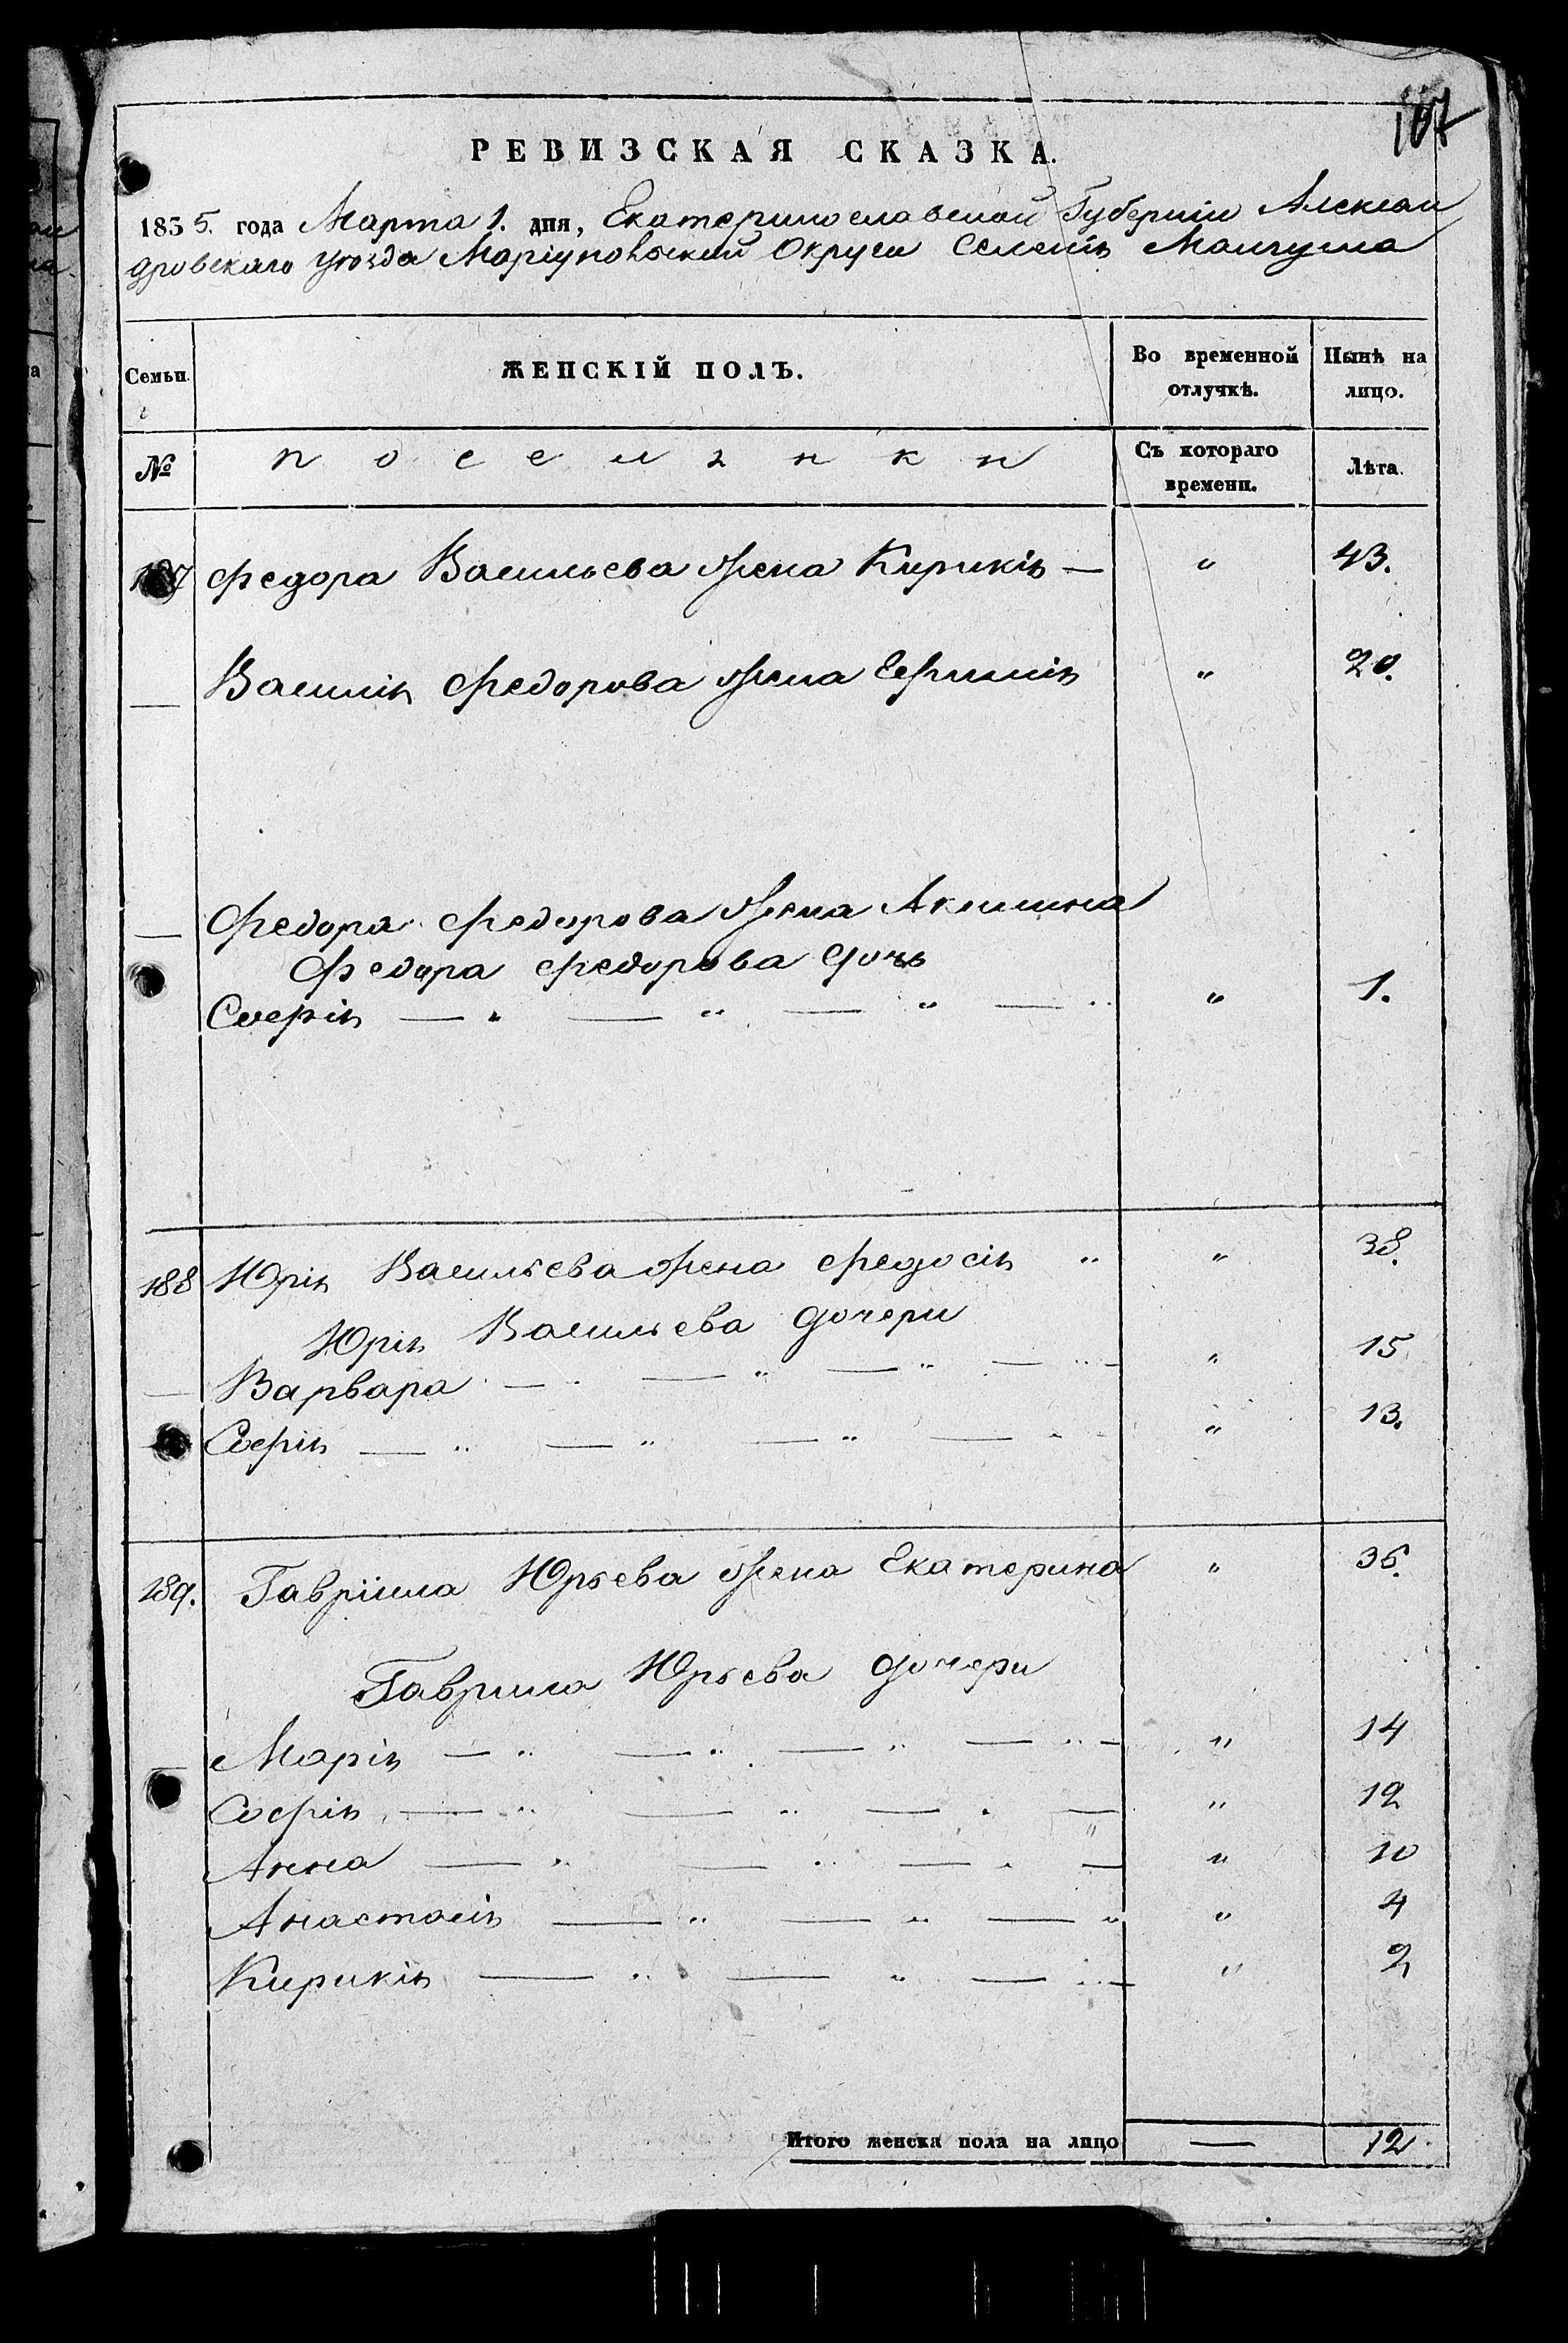 107
РЕВИЗСКАЯ СКАЗКА.
1855. года Марта 1. дня, Екатеринославской Губерніи Алексан
дровскаго уѣзда Маріупольскій Округи Селенія Мангуша
Семьи. ЖЕНСКІЙ ПОЛЪ. Во временной отлучкѣ. Нынѣ на лицо.
№ поселянки Съ котораго времени. Лѣта.
187 Федора Васильева жена Кирикія — " 43.
— Василія Федорова жена Ефимія " 20.
— Федора Федорова жена Акилина
Федора Федорова дочь
Софія — " — " — " — " " 1.
188 Юрія Васильева жена Федосія " " 38.
Юрія Васильева дочери
— Варвара — " — " — " — " — " 15
— Софія — " — " — " — " " 13.
189. Гавріила Юрьева жена Екатерина " 36.
Гаврила Юрьева дочери
— Марія — " — " — " — " — " 14
Софія — " — " — " — " " 12
Анна — " — " — " — " 10
Анастасія — " — " — " " 4
Кирикія — " — " — " — " 2
Итого женска пола на лицо — 12.